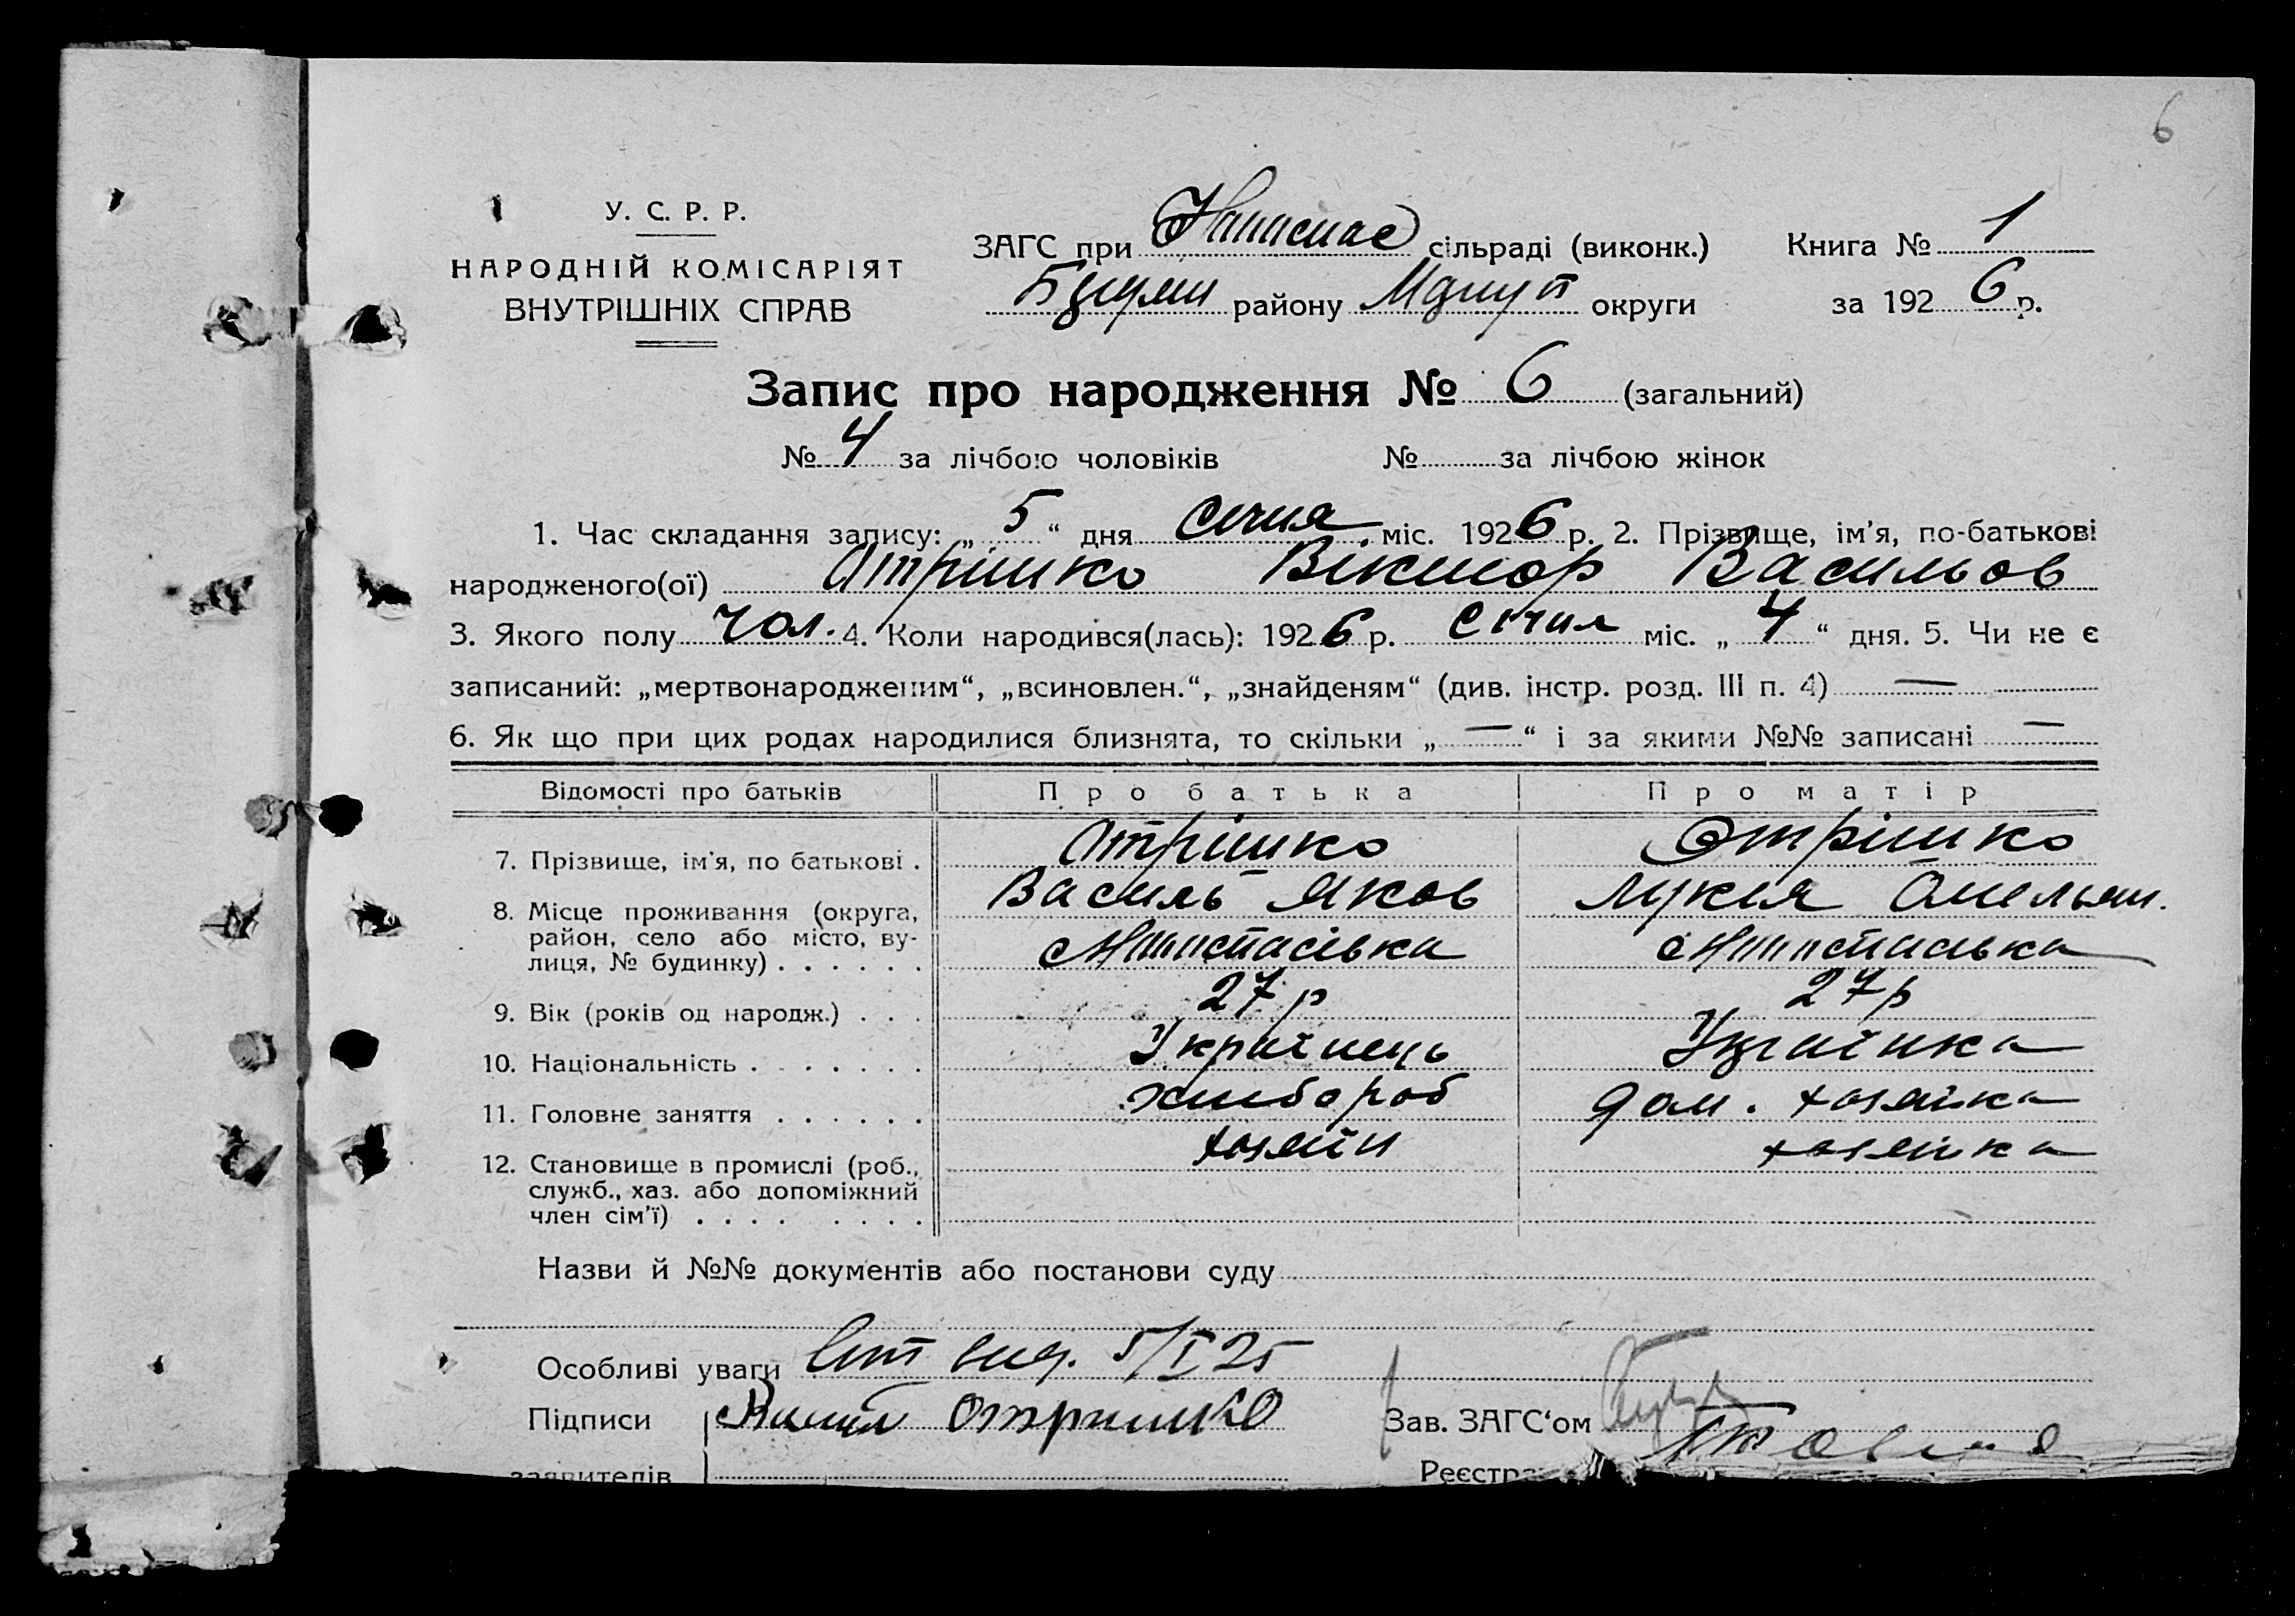 6
У. С. Р. Р.
НАРОДНІЙ КОМІСАРІЯТ
ВНУТРІШНІХ СПРАВ
ЗАГС при сільраді (виконк.)
району округи
Книга № 1
за 192 6 р.
Запис про народження № 6 (загальний)
№ 4 за лічбою чоловіків № за лічбою жінок
1. Час складання запису: „ 5 “ дня Січня міс. 192 6 р. 2. Прізвище, ім'я, по-батькові
народженого(ої) Отрішко Віктор Васильов
3. Якого полу чол. 4. Коли народився(лась): 192 6 р. Січня міс. „ 4 “ дня. 5. Чи не є
записаний: „мертвонародженим“, „всиновлен.“, „знайденям“ (див. інстр. розд. III п. 4) —
6. Як що при цих родах народилися близнята, то скільки „ — “ і за якими №№ записані —
Відомості про батьків Про батька Про матір
7. Прізвище, ім'я, по батькові . Отрішко Отрішко
Василь Яков Лукія Омельян.
8. Місце проживання (округа,
район, село або місто, ву-
лиця, № будинку) . . . . . .
9. Вік (років од народж.) . . . 27 р 27 р
10. Національність . . . . . . . Українець Українка
11. Головне заняття . . . . . . хлібороб дом. хазяйка
12. Становище в промислі (роб., хазяїн хазяйка
служб., хаз. або допоміжний
член сім'ї) . . . . . . . .
Назви й №№ документів або постанови суду
Особливі уваги вид. 5/I 25
Підписи Отришко Зав. ЗАГС‘ом
заявителів Реєстра